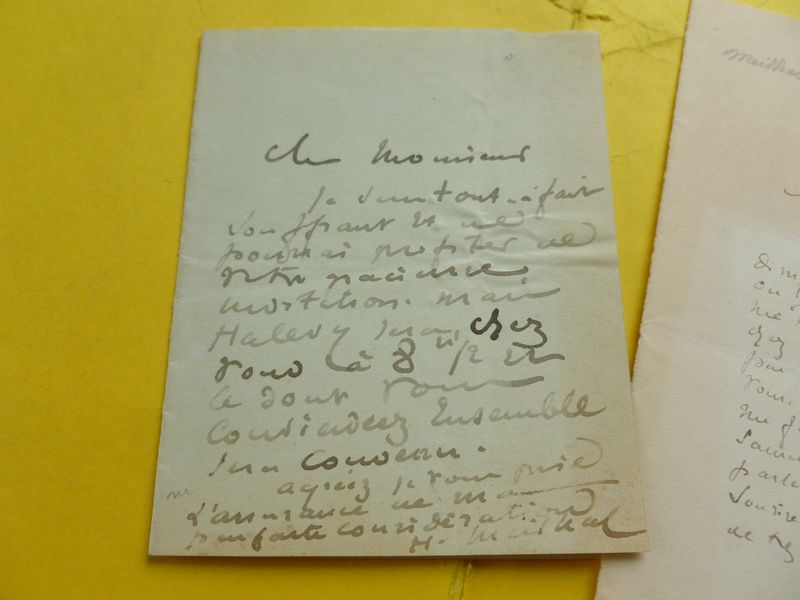 Cher Monsieur
Je suis tout-à-fait
souffrant et ne
pourrai profiter de
votre gracieuse
invitation. mais
Halevy sera chez
vous à 8 h 1/2 et
ce dont vous
conviendrez Ensemble
sera convenu.
agréez je vous prie
L'assurance de ma
parfaite considération
H. Meilhac
Meilhac
ou
me
chez
par
vous.
de